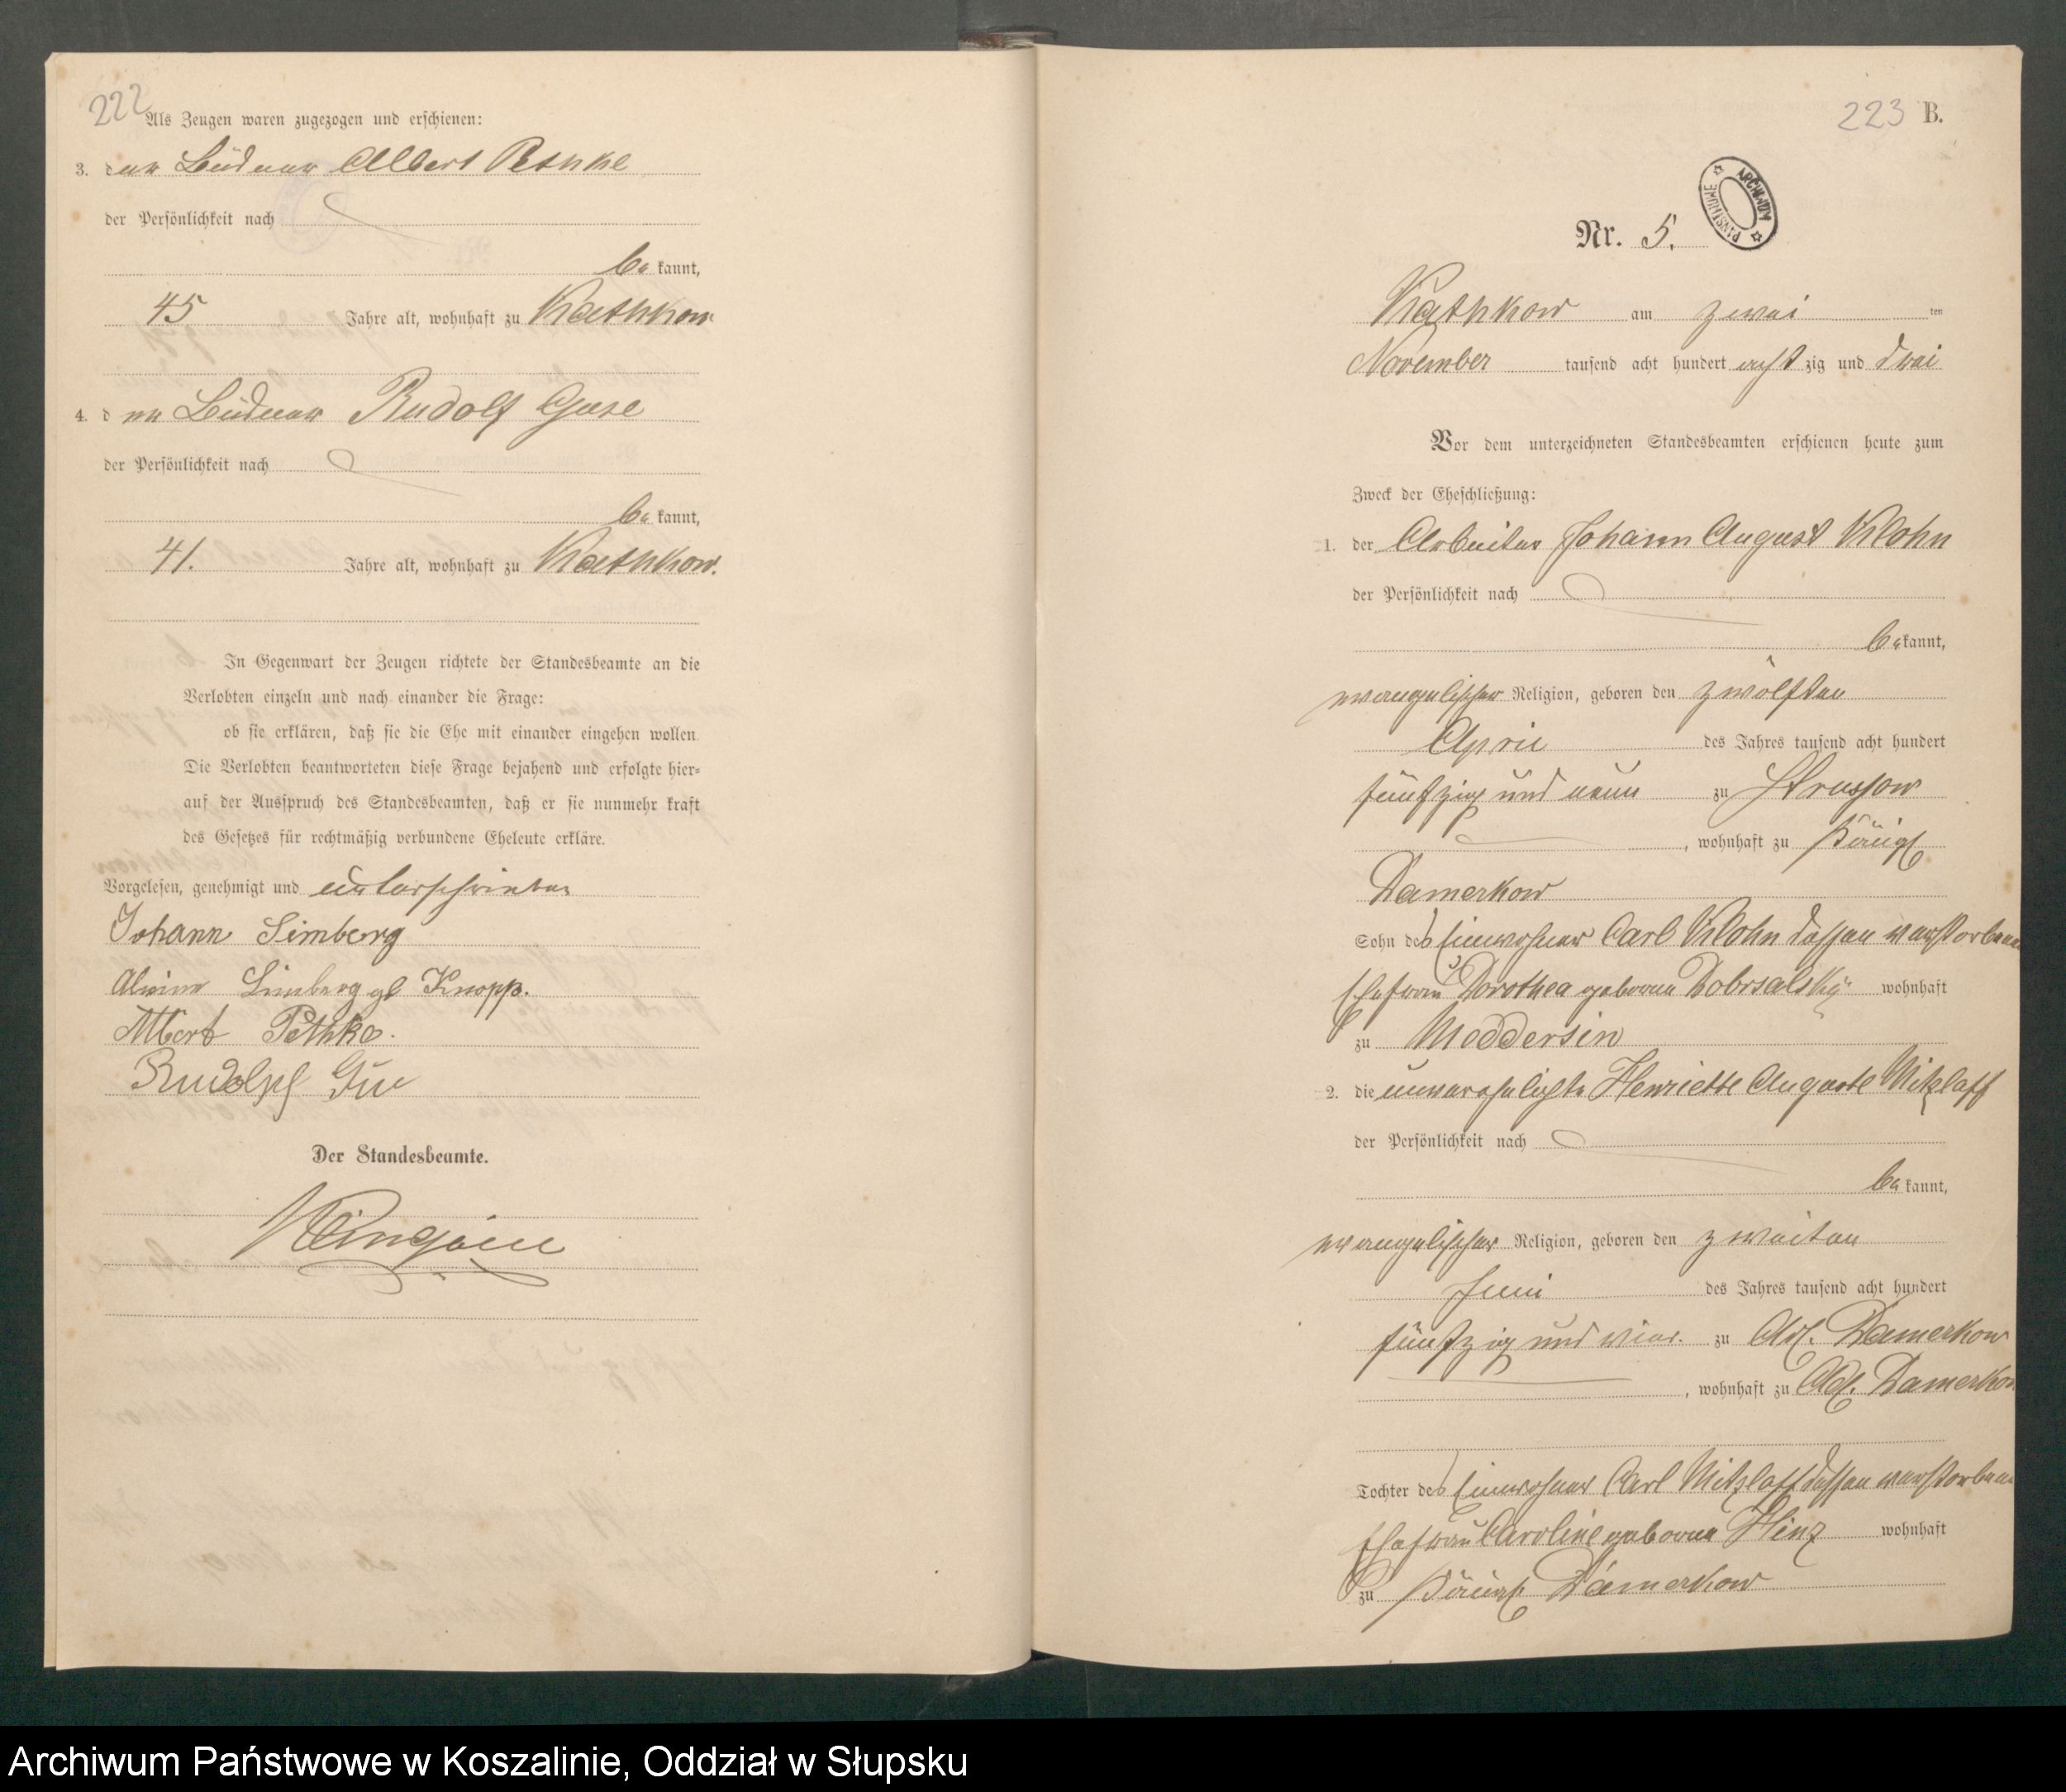 222
Als Zeugen waren zugezogen und erschienen:
3. der Büdner Albert Pethke
der Persönlichkeit nach
bekannt,
45 Jahre alt, wohnhaft zu Kathkow
4. der Büdner Rudolf Guse
der Persönlichkeit nach
bekannt,
41. Jahre alt, wohnhaft zu Kathkow.
In Gegenwart der Zeugen richtete der Standesbeamte an die
Verlobten einzeln und nach einander die Frage:
ob sie erklären, daß sie die Ehe mit einander eingehen wollen.
Die Verlobten beantworteten diese Frage bejahend und erfolgte hier-
auf der Ausspruch des Standesbeamten, daß er sie nunmehr kraft
des Gesetzes für rechtmäßig verbundene Eheleute erkläre.
Vorgelesen, genehmigt und unterschrieben
Johann Limberg
Alwine Limberg gb Knopp.
Albert Pethke.
Rudolph
Der Standesbeamte.
223 B.
ARCHIWUM PAŃSTWOWE
Nr. 5.
Kathkow am zwei ten
November tausend acht hundert achtzig und drei
Vor dem unterzeichneten Standesbeamten erschienen heute zum
Zweck der Eheschließung:
1. der Arbeiter Johann August Klohn
der Persönlichkeit nach
bekannt,
evangelischer Religion, geboren den zwölften
April des Jahres tausend acht hundert
fünfzig und neun zu Strussow
, wohnhaft zu Königl
Damerkow
Sohn des Einwohner Carl Klohn dessen verstorbene
Ehefrau Dorothea geborene Dobrsalsky wohnhaft
zu Moddersin
2. die unverehelichte Henriette Auguste Mitzlaff
der Persönlichkeit nach
bekannt,
evangelischer Religion, geboren den zweiten
Juni des Jahres tausend acht hundert
fünfzig und vier. zu Adl. Damerkow
, wohnhaft zu Adl. Damerkow
Tochter des Einwohner Carl Mitzlaff dessen verstorbene
Ehefrau Caroline geborene Hinz wohnhaft
zu Königl Damerkow
Archiwum Państwowe w Koszalinie, Oddział w Słupsku